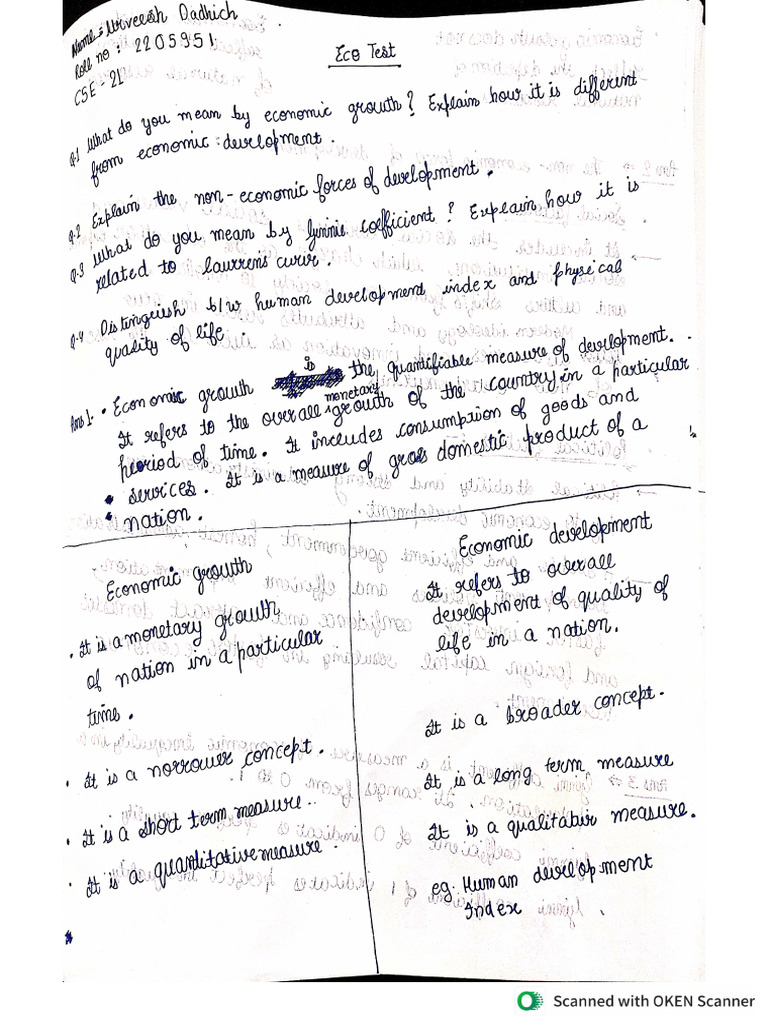 Name: Urveesh Dadhich
Roll no : 2205951
CSE - 21
Eco Test
Q.1 What do you mean by economic growth? Explain how it is different
from economic development.
Q.2 Explain the non-economic forces of development.
Q.3 What do you mean by Gynnie coefficient? Explain how it is
related to laurrens curvr.
Q.4 Distinguish b/w human development index and physical
quality of life.
Ans 1. • Economic growth is the quantifiable measure of development.
It refers to the overall monetary growth of the country in a particular
period of time. It includes consumption of goods and
services. It is a measure of gross domestic product of a
nation.
Economic growth
• It is a monetary growth
of nation in a particular
time.
• It is a norrower concept.
• It is a short term measure.
• It is a quantitative measure.
Economic development
It refers to overall
development of quality of
life in a nation.
It is a broader concept.
It is a long term measure
It is a qualitative measure.
eg. Human development
Index
Scanned with OKEN Scanner